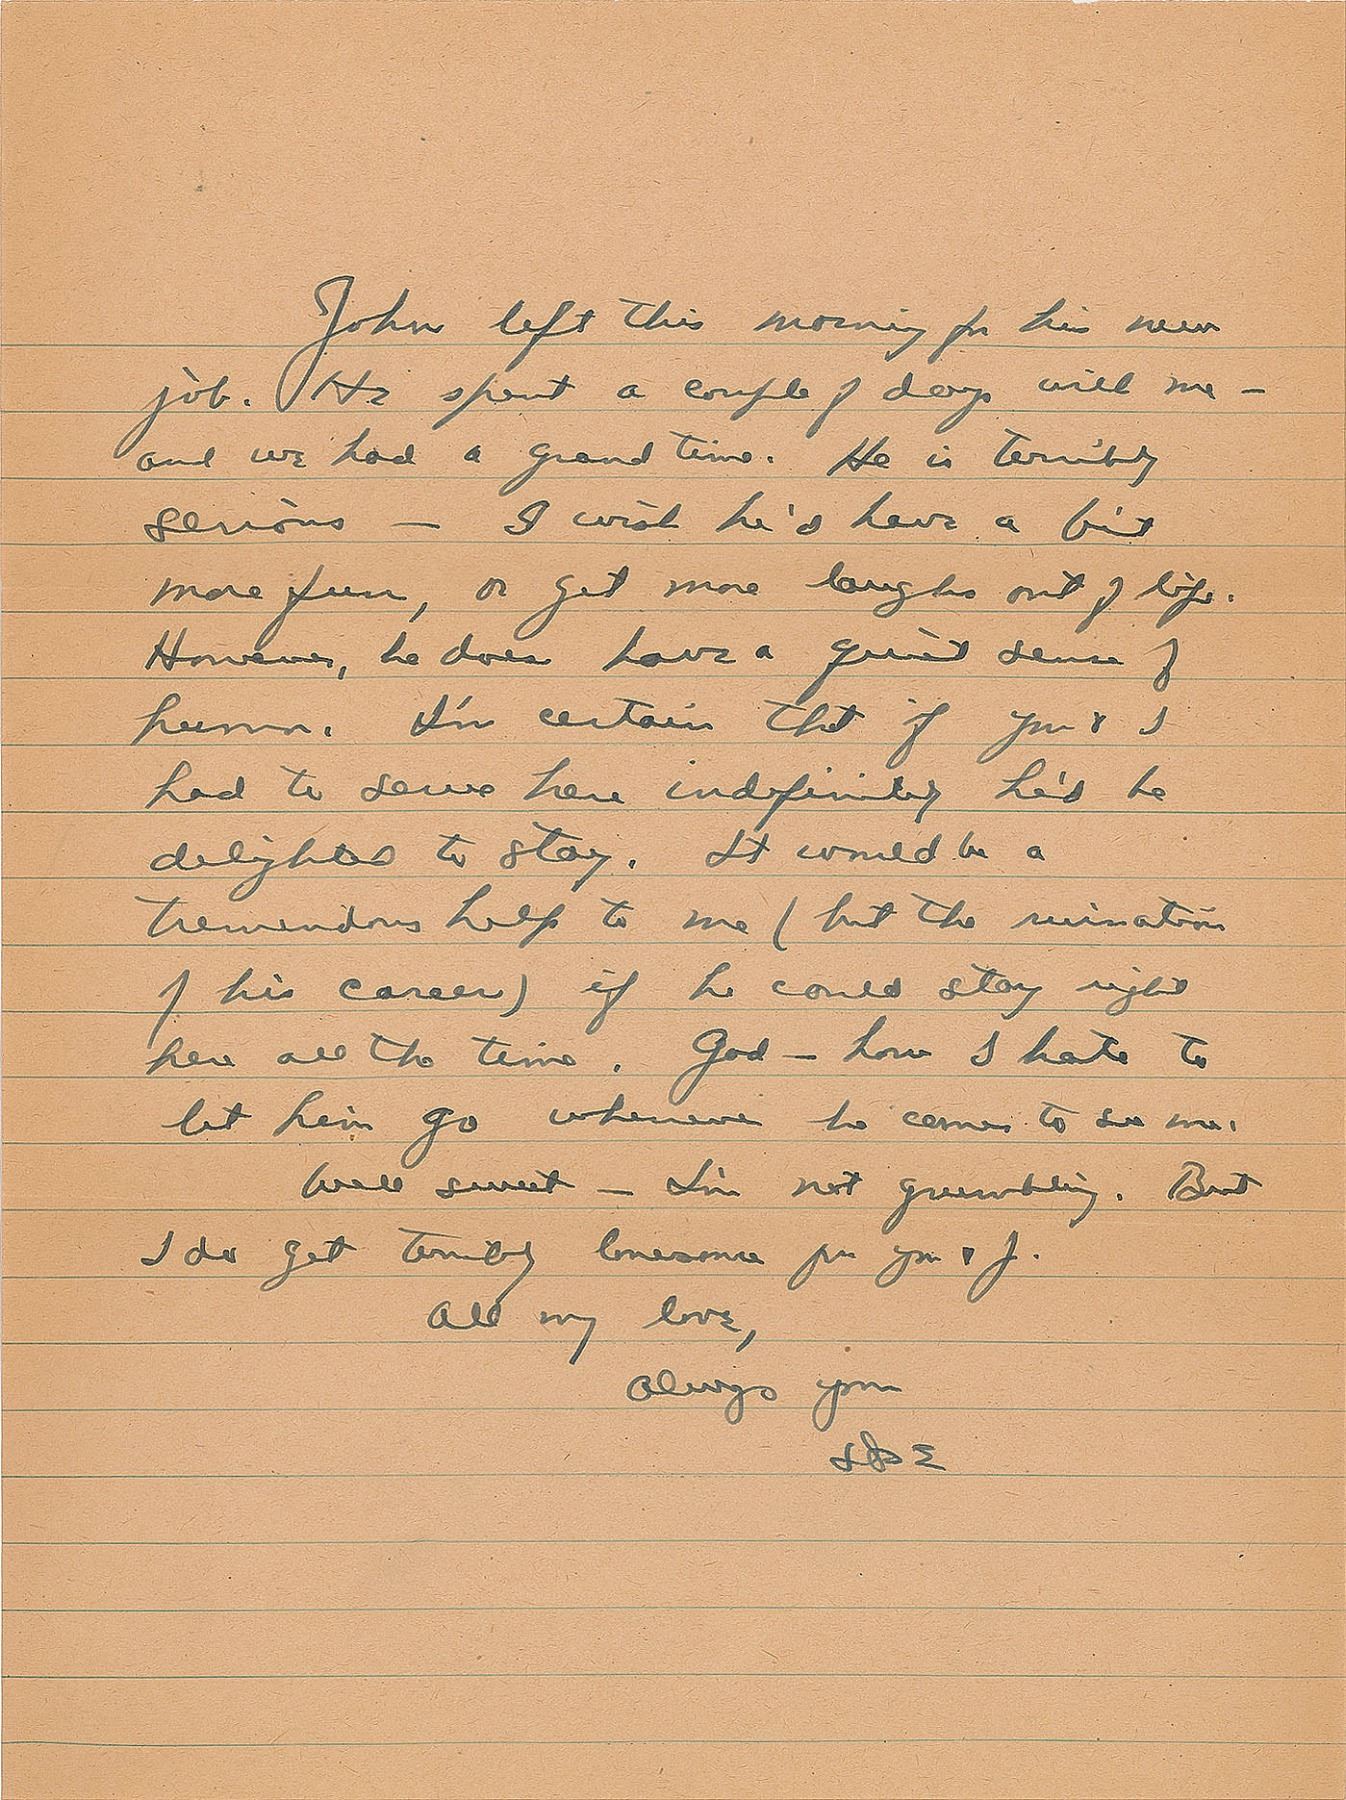 John left this morning for his new
job. He spent a couple of days with me –
and we had a grand time. He is terribly
serious — I wish he'd have a bit
more fun, or get more laughs out of life.
However, he does have a quiet sense of
humor. I'm certain that if you & I
had to serve here indefinitely he'd be
delighted to stay. It would be a
tremendous help to me (but the ruination
of his career) if he could stay right
here all the time. God – how I hate to
let him go whenever he comes to see me.
Well sweet – I'm not grumbling. But
I do get terribly lonesome for you & J.
All my love,
Always your